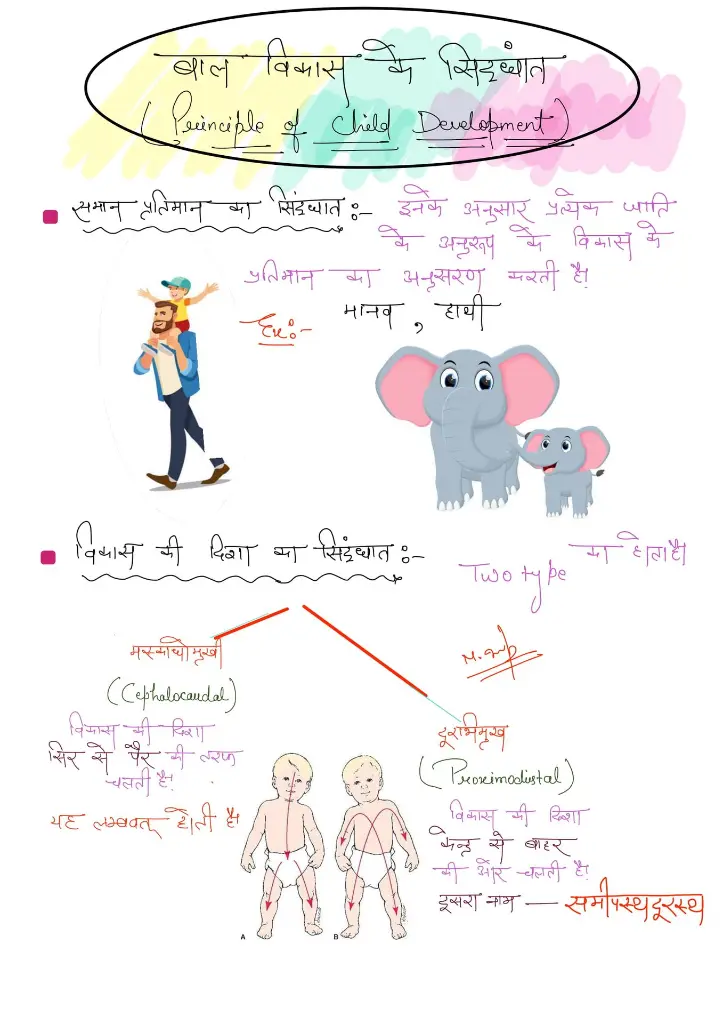 बाल विकास के सिद्धांत
(Principle of Child Development)
समान प्रतिमान का सिद्धांत :- इनके अनुसार प्रत्येक जाति
के अनुरूप के विकास के
प्रतिमान का अनुसरण करती है।
Ex:- मानव , हाथी
विकास की दिशा का सिद्धांत :-
Two type का होता है।
मस्काधोमुखी
(Cephalocaudal)
विकास की दिशा
सिर से पैर की तरफ
चलती है।
यह लम्बवत् होती है।
M. Imp
दूराभिमुख
(Proximodistal)
विकास की दिशा
केन्द्र से बाहर
की ओर चलती है।
दूसरा नाम — समीपस्थदूरस्थ
A B